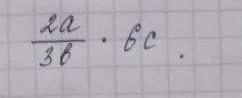 2a/3b · 6c .